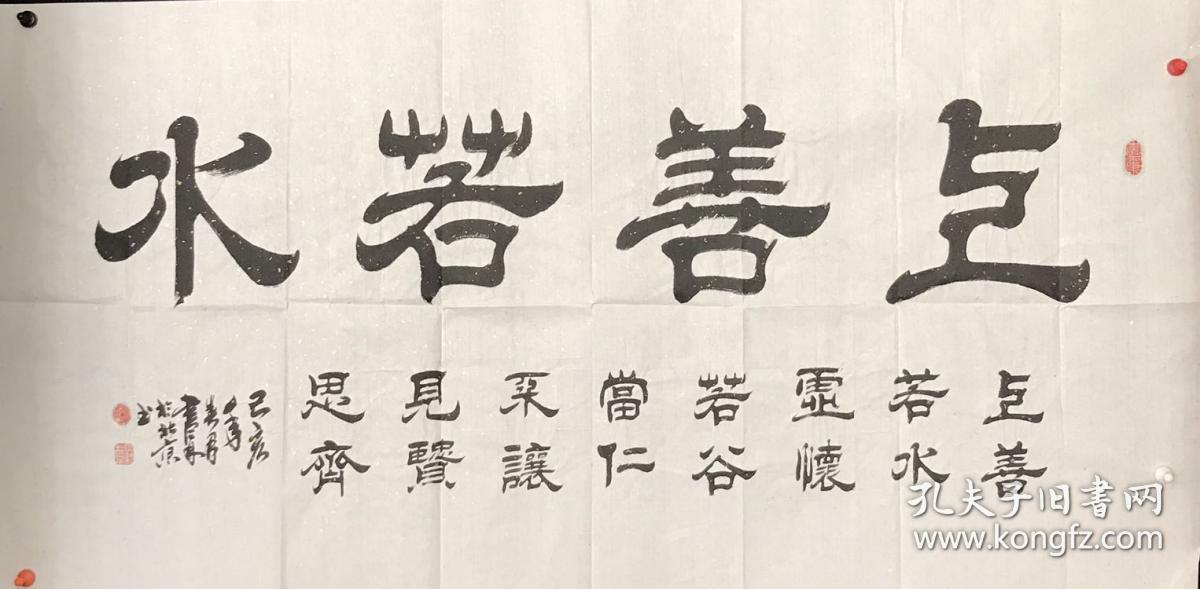 上善若水
上善
若水
虛懷
若谷
當仁
不讓
見賢
思齊
己亥
於北京
孔夫子旧书网
www.kongfz.com